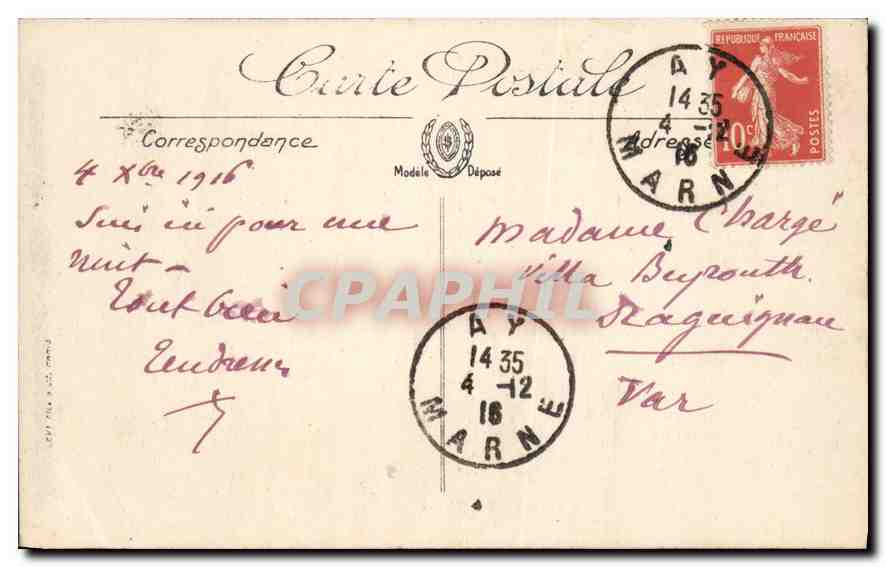 Carte Postale
RÉPUBLIQUE FRANÇAISE
10c
POSTES
AY
14 35
4 -12
16
MARNE
Correspondance
Modèle Déposé
Adresse
4 Xbre 1916
Suis ici pour une
nuit -
Tout bien
Tendresses
Madame Chargé
Villa Beyrouth
Draguignan
Var
CPAPHIL
AY
14 35
4 -12
16
MARNE